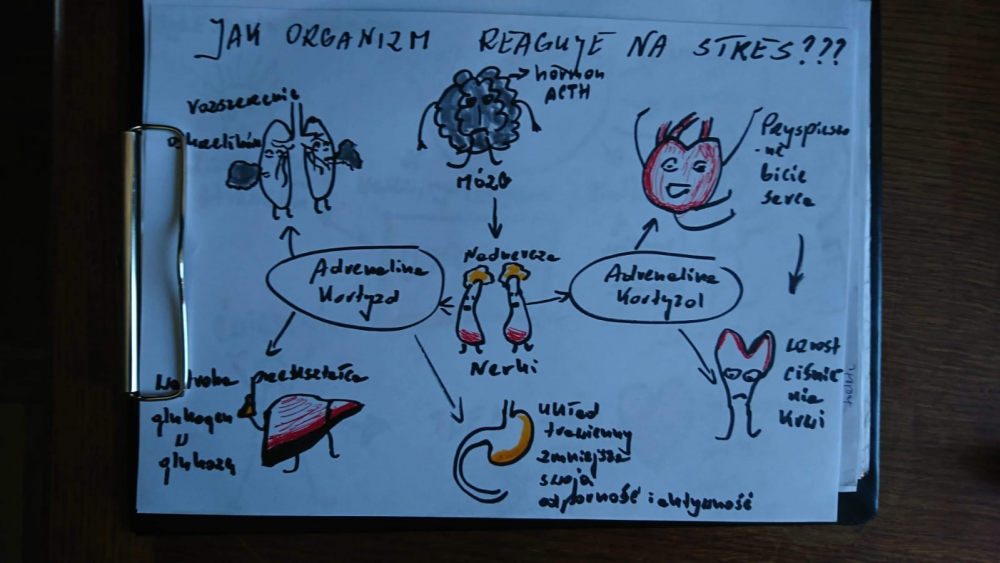 JAK ORGANIZM REAGUJE NA STRES???
rozszerzenie
oskrzelików
hormon
ACTH
MÓZG
Pryspieszo
-ne
bicie
serca
Nadnercza
Adrenalina
Kortyzol
Adrenalina
Kortyzol
Nerki
Wątroba przekształca
glukogen
w
glukozę
układ
trawienny
zmniejsza
swoją
odporność i aktywność
wzrost
ciśnie
nia
krwi